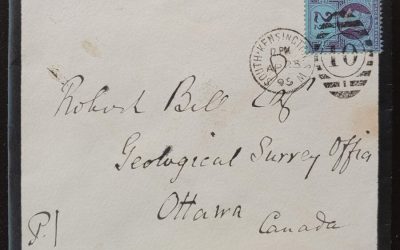 SOUTH-KENSINGTON
AP 23
95
10
Robert Bell Esq
Geological Survey Office
Ottawa
Canada
P.